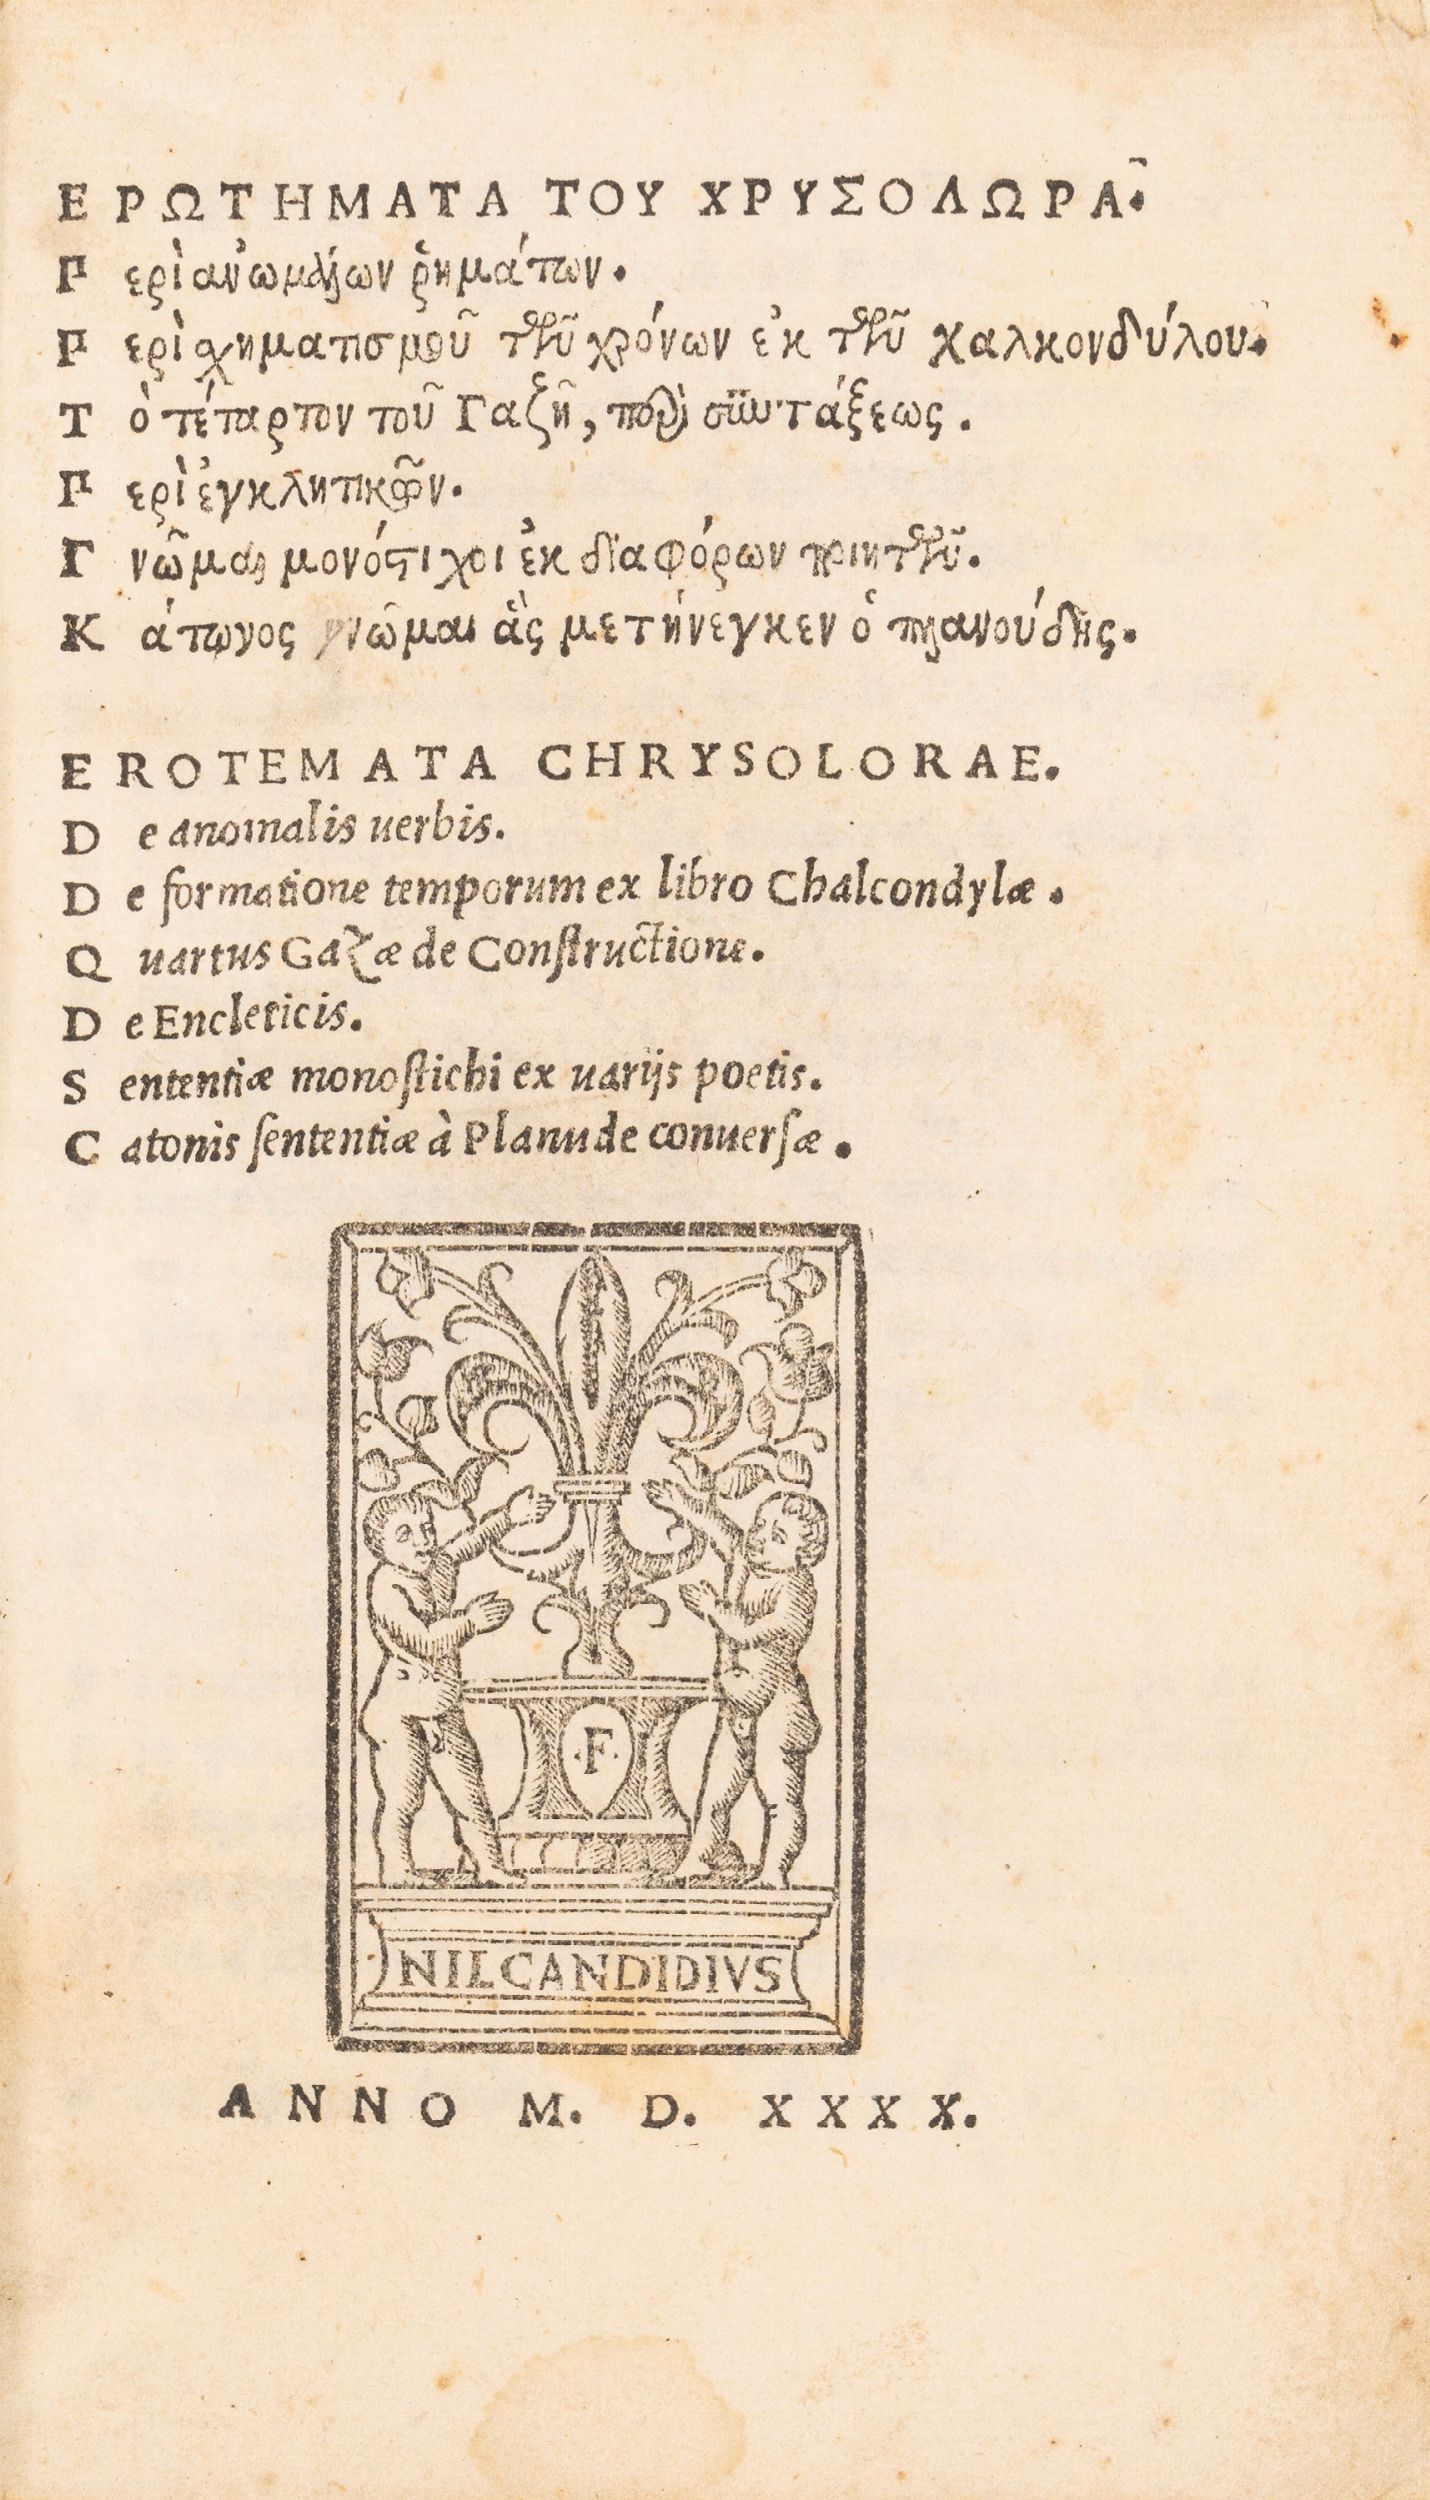 ΕΡΩΤΗΜΑΤΑ ΤΟΥ ΧΡΥΣΟΛΩΡΑ͂.
Περὶ ἀνωμάλων ῥημάτων.
Περὶ χηματισμοῦ τῶν χρόνων ἐκ τῶν χαλκονδύλου.
Τὸ τέταρτον τοῦ Γαζῆ, περὶ συντάξεως.
Περὶ ἐγκλητικῶν.
Γνῶμαι μονόστιχοι ἐκ διαφόρων ποιητῶν.
Κάτωνος γνῶμαι ἃς μετήνεγκεν ὁ πλανούδης.
EROTEMATA CHRYSOLORAE.
De anomalis uerbis.
De formatione temporum ex libro Chalcondylæ.
Quartus Gazæ de Constructione.
De Encleticis.
Sententiæ monostichi ex uarijs poetis.
Catonis sententiæ à Planude conuersæ.
·F·
NIL CANDIDIVS
ANNO M. D. XXXX.